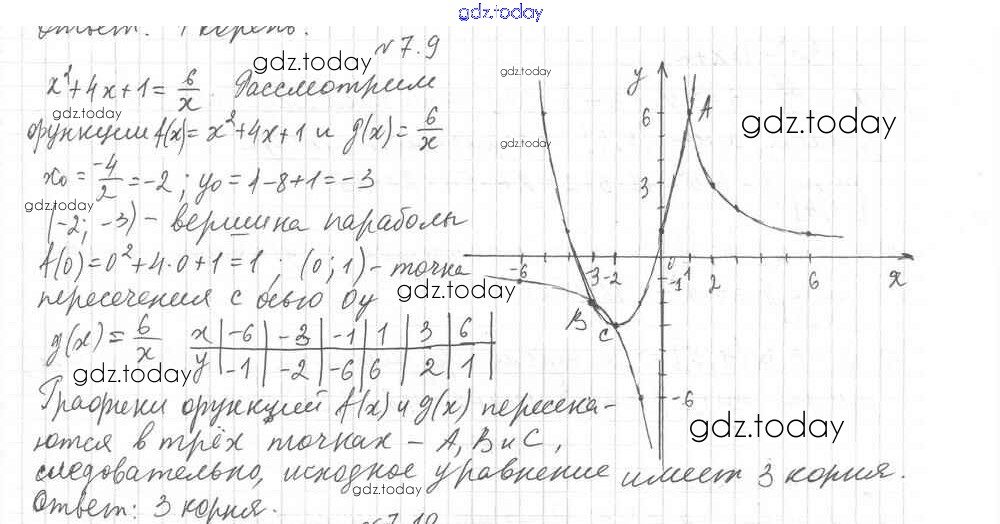 gdz.today
Ответ: 1 корень.
№7.9
gdz.today
x²+4x+1 = 6/x. Рассмотрим
gdz.today
функции f(x)=x²+4x+1 и g(x)=6/x
x₀ = -4/2 = -2; y₀ = 4-8+1 = -3
gdz.today
(-2; -3) - вершина параболы
f(0)=0²+4·0+1=1; (0;1) - точка
пересечения с осью Oy
gdz.today
g(x)=6/x
x | -6 | -3 | -1 | 1 | 3 | 6
y | -1 | -2 | -6 | 6 | 2 | 1
gdz.today
Графики функций f(x) и g(x) пересека-
ются в трёх точках - A, B и C,
следовательно, исходное уравнение имеет 3 корня.
gdz.today
Ответ: 3 корня.
№7.10
gdz.today
gdz.today
gdz.today
y
6
A
3
-6 -3 -2 0 1 2 6 x
B
C
-6
gdz.today